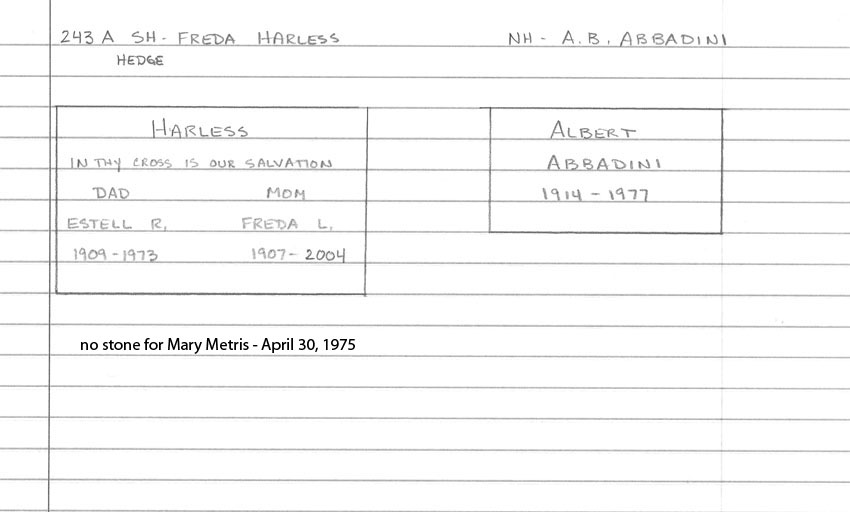 243 A SH - FREDA HARLESS
NH - A.B. ABBADINI
HEDGE
HARLESS
IN THY CROSS IS OUR SALVATION
DAD MOM
ESTELL R. FREDA L.
1909 - 1973 1907 - 2004
ALBERT
ABBADINI
1914 - 1977
no stone for Mary Metris - April 30, 1975